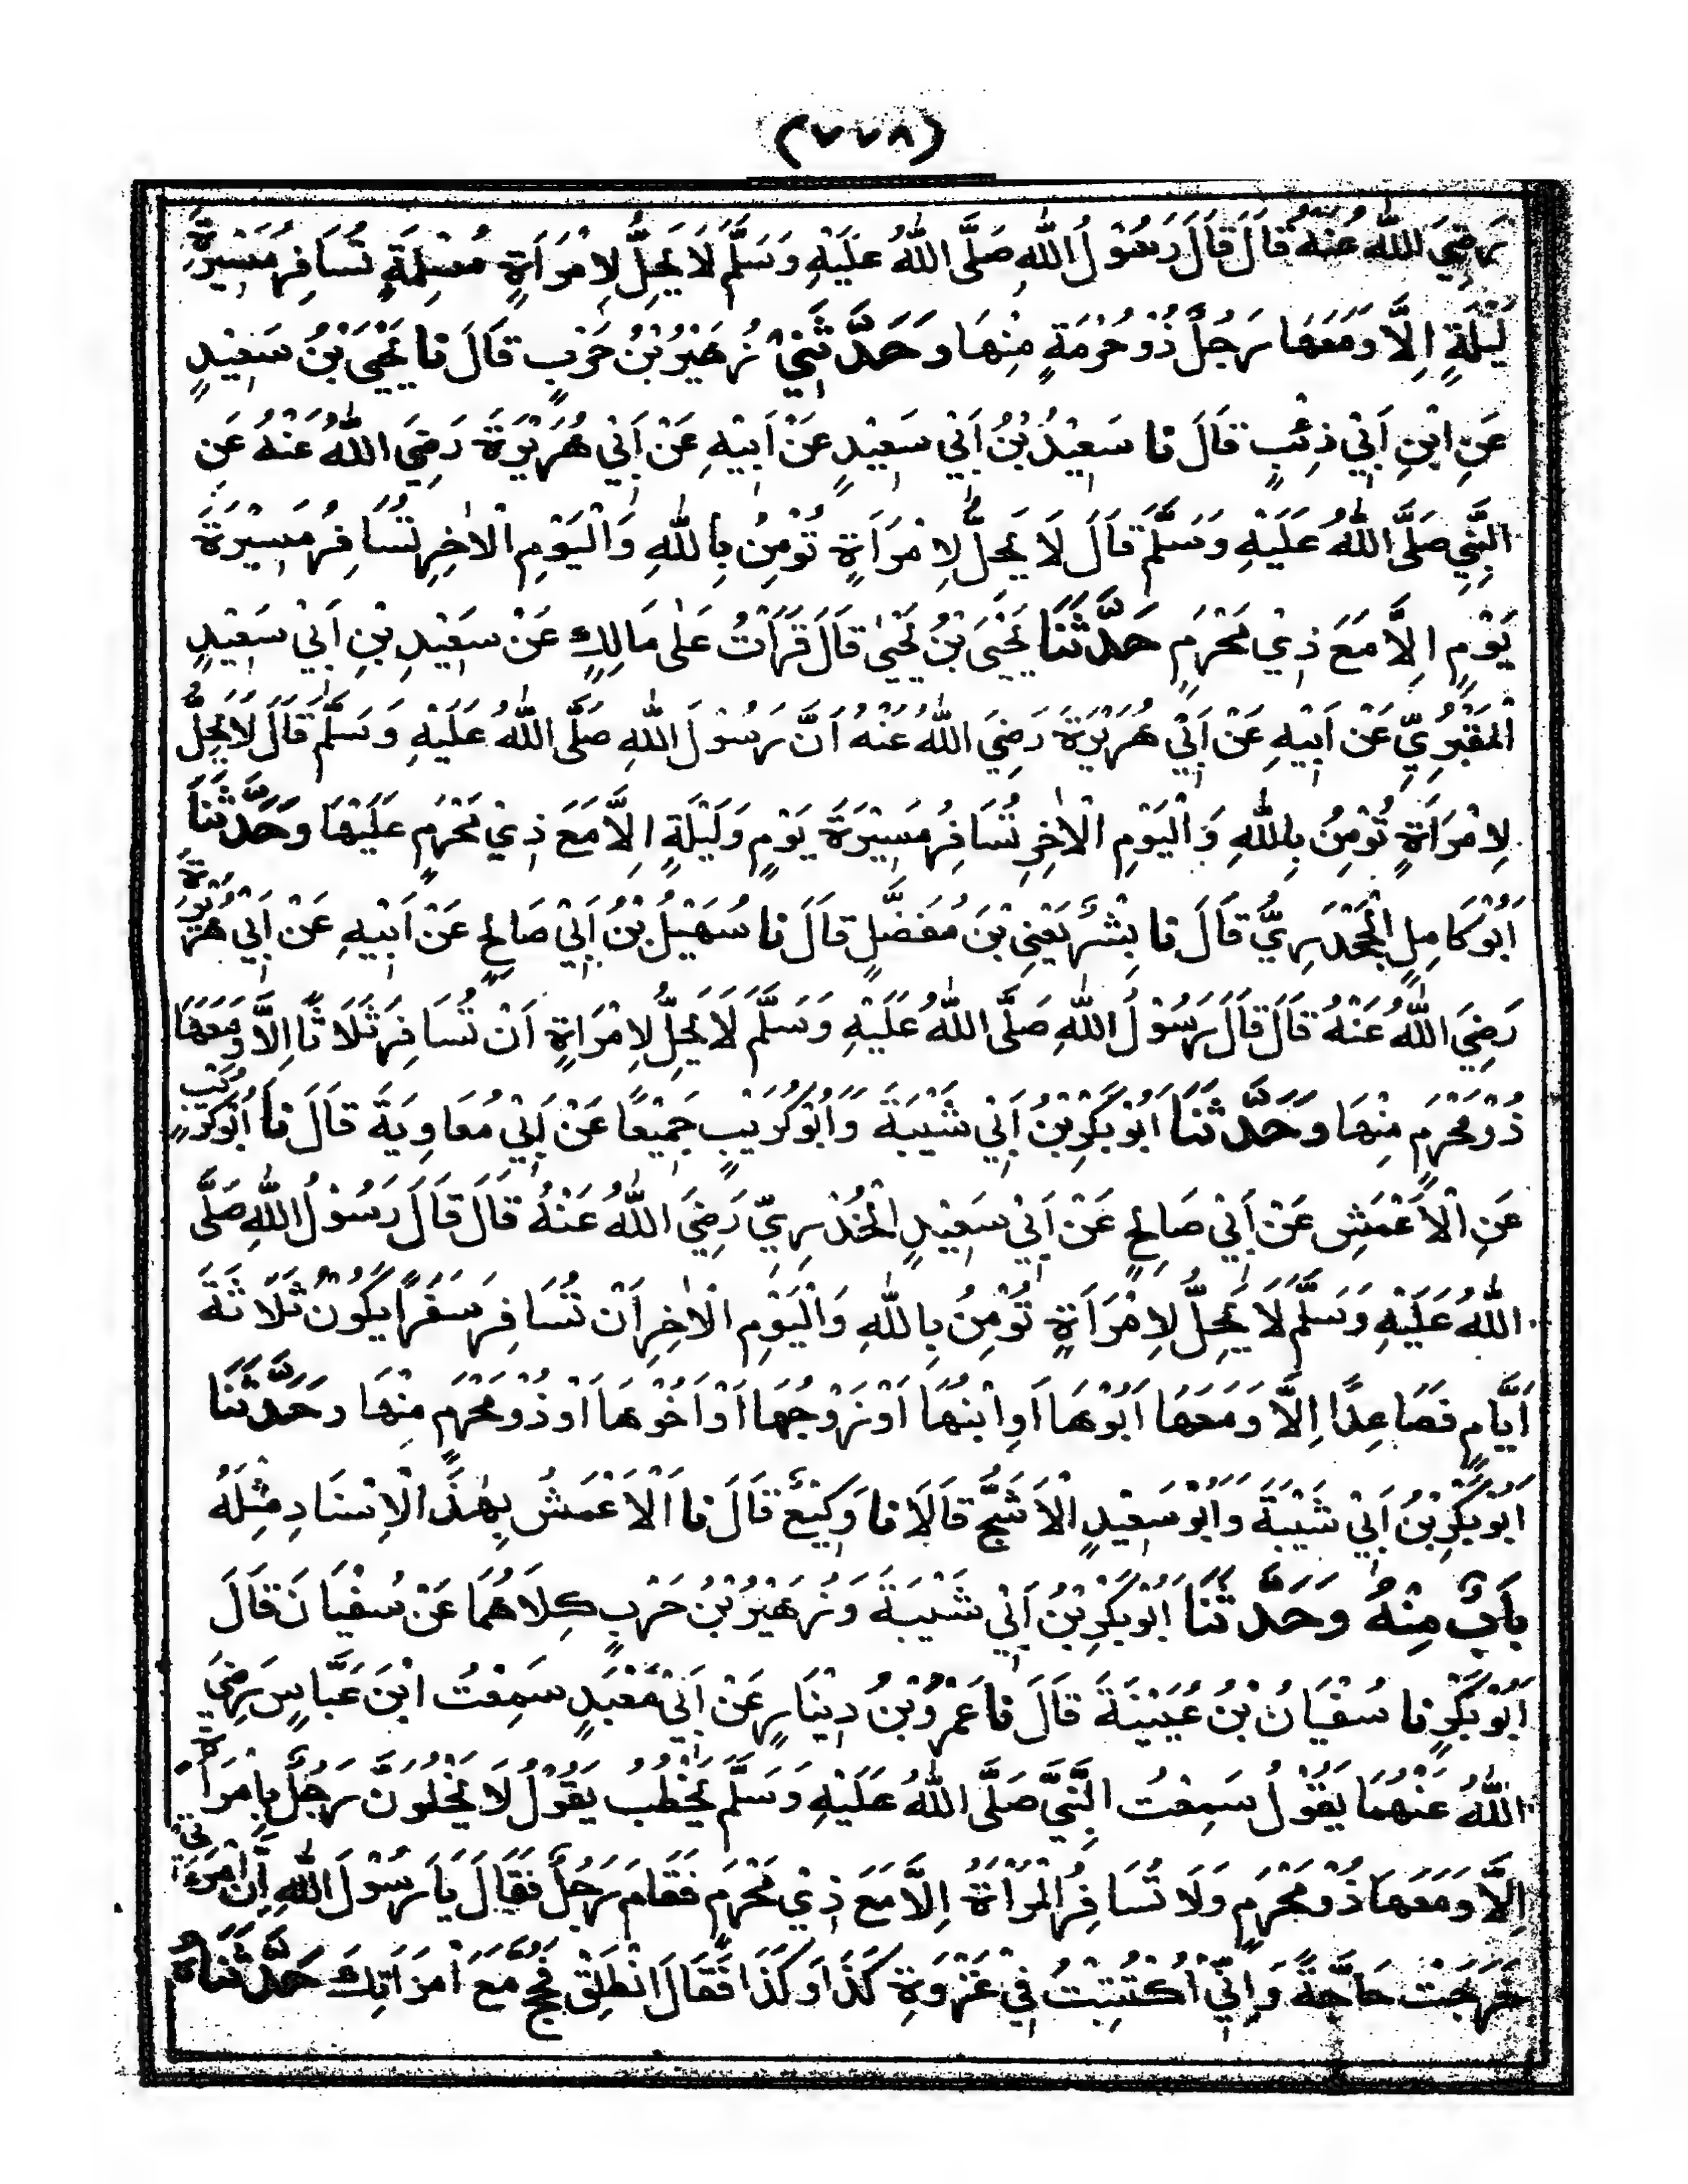 (٧٧٨)
رَضِيَ اللّٰهُ عَنْهُ قَالَ قَالَ رَسُوْلُ اللّٰهِ صَلَّى اللّٰهُ عَلَيْهِ وَسَلَّمَ لَا يَحِلُّ لِامْرَاَةٍ مُسْلِمَةٍ تُسَافِرُ مَسِيْرَةَ
لَيْلَةٍ اِلَّا وَمَعَهَا رَجُلٌ ذُوْ حُرْمَةٍ مِنْهَا وَحَدَّثَنِيْ زُهَيْرُ بْنُ حَرْبٍ قَالَ نا يَحْيَى بْنُ سَعِيْدٍ
عَنِ ابْنِ اَبِيْ ذِئْبٍ قَالَ نا سَعِيْدُ بْنُ اَبِيْ سَعِيْدٍ عَنْ اَبِيْهِ عَنْ اَبِيْ هُرَيْرَةَ رَضِيَ اللّٰهُ عَنْهُ عَنِ
النَّبِيِّ صَلَّى اللّٰهُ عَلَيْهِ وَسَلَّمَ قَالَ لَا يَحِلُّ لِامْرَاَةٍ تُؤْمِنُ بِاللّٰهِ وَالْيَوْمِ الْاٰخِرِ تُسَافِرُ مَسِيْرَةَ
يَوْمٍ اِلَّا مَعَ ذِيْ مَحْرَمٍ حَدَّثَنَا يَحْيَى بْنُ يَحْيٰى قَالَ قَرَأْتُ عَلٰى مَالِكٍ عَنْ سَعِيْدِ بْنِ اَبِيْ سَعِيْدٍ
الْمَقْبُرِيِّ عَنْ اَبِيْهِ عَنْ اَبِيْ هُرَيْرَةَ رَضِيَ اللّٰهُ عَنْهُ اَنَّ رَسُوْلَ اللّٰهِ صَلَّى اللّٰهُ عَلَيْهِ وَسَلَّمَ قَالَ لَا يَحِلُّ
لِامْرَاَةٍ تُؤْمِنُ بِاللّٰهِ وَالْيَوْمِ الْاٰخِرِ تُسَافِرُ مَسِيْرَةَ يَوْمٍ وَلَيْلَةٍ اِلَّا مَعَ ذِيْ مَحْرَمٍ عَلَيْهَا وَحَدَّثَنَا
اَبُوْ كَامِلٍ الْجَحْدَرِيُّ قَالَ نا بِشْرٌ يَعْنِي بْنَ مُفَضَّلٍ قَالَ نا سُهَيْلُ بْنُ اَبِيْ صَالِحٍ عَنْ اَبِيْهِ عَنْ اَبِيْ هُرَيْرَةَ
رَضِيَ اللّٰهُ عَنْهُ قَالَ قَالَ رَسُوْلُ اللّٰهِ صَلَّى اللّٰهُ عَلَيْهِ وَسَلَّمَ لَا يَحِلُّ لِامْرَاَةٍ اَنْ تُسَافِرَ ثَلَاثًا اِلَّا وَمَعَهَا
ذُوْ مَحْرَمٍ مِنْهَا وَحَدَّثَنَا اَبُوْ بَكْرِ بْنُ اَبِيْ شَيْبَةَ وَاَبُوْ كُرَيْبٍ جَمِيْعًا عَنْ اَبِيْ مُعَاوِيَةَ قَالَ نا اَبُوْ كُرَيْبٍ
عَنِ الْاَعْمَشِ عَنْ اَبِيْ صَالِحٍ عَنْ اَبِيْ سَعِيْدٍ الْخُدْرِيِّ رَضِيَ اللّٰهُ عَنْهُ قَالَ قَالَ رَسُوْلُ اللّٰهِ صَلَّى
اللّٰهُ عَلَيْهِ وَسَلَّمَ لَا يَحِلُّ لِامْرَاَةٍ تُؤْمِنُ بِاللّٰهِ وَالْيَوْمِ الْاٰخِرِ اَنْ تُسَافِرَ سَفَرًا يَكُوْنُ ثَلَاثَةَ
اَيَّامٍ فَصَاعِدًا اِلَّا وَمَعَهَا اَبُوْهَا اَوِ ابْنُهَا اَوْ زَوْجُهَا اَوْ اَخُوْهَا اَوْ ذُوْ مَحْرَمٍ مِنْهَا وَحَدَّثَنَا
اَبُوْ بَكْرِ بْنُ اَبِيْ شَيْبَةَ وَاَبُوْ سَعِيْدٍ الْاَشَجُّ قَالَا نا وَكِيْعٌ قَالَ نا الْاَعْمَشُ بِهٰذَا الْاِسْنَادِ مِثْلَهُ
بَابٌ مِنْهُ وَحَدَّثَنَا اَبُوْ بَكْرِ بْنُ اَبِيْ شَيْبَةَ وَزُهَيْرُ بْنُ حَرْبٍ كِلَاهُمَا عَنْ سُفْيَانَ قَالَ
اَبُوْ بَكْرٍ نا سُفْيَانُ بْنُ عُيَيْنَةَ قَالَ نا عَمْرُو بْنُ دِيْنَارٍ عَنْ اَبِيْ مَعْبَدٍ سَمِعْتُ ابْنَ عَبَّاسٍ رَضِيَ
اللّٰهُ عَنْهُمَا يَقُوْلُ سَمِعْتُ النَّبِيَّ صَلَّى اللّٰهُ عَلَيْهِ وَسَلَّمَ يَخْطُبُ يَقُوْلُ لَا يَخْلُوَنَّ رَجُلٌ بِامْرَاَةٍ
اِلَّا وَمَعَهَا ذُوْ مَحْرَمٍ وَلَا تُسَافِرُ الْمَرْاَةُ اِلَّا مَعَ ذِيْ مَحْرَمٍ فَقَامَ رَجُلٌ فَقَالَ يَا رَسُوْلَ اللّٰهِ اِنَّ امْرَاَتِيْ
خَرَجَتْ حَاجَّةً وَاِنِّيْ اُكْتُتِبْتُ فِيْ غَزْوَةِ كَذَا وَكَذَا فَقَالَ انْطَلِقْ فَحُجَّ مَعَ امْرَاَتِكَ حَدَّثَنَاهُ